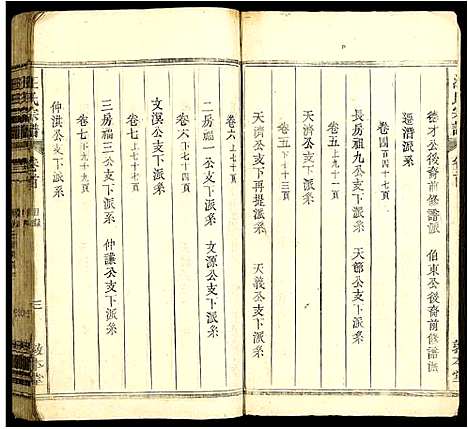 汪氏宗譜 卷首
德才公後裔前修譜派 伯東公後裔前修譜派
遷潛派系
卷四百四十七頁
長房祖九公支下派系 天爵公支下派系
卷五上九十一頁
天濟公支下再堤派系 天義公支下派系
卷五下十三頁
卷六上七十頁
二房福一公支下派系 文源公支下派系
卷六下七十四頁
文溟公支下派系
卷七上七十七頁
三房福三公支下派系 仲謙公支下派系
卷七下九十九頁
仲洪公支下派系
汪氏宗譜 卷首 目錄 三 敦本堂
敦本堂